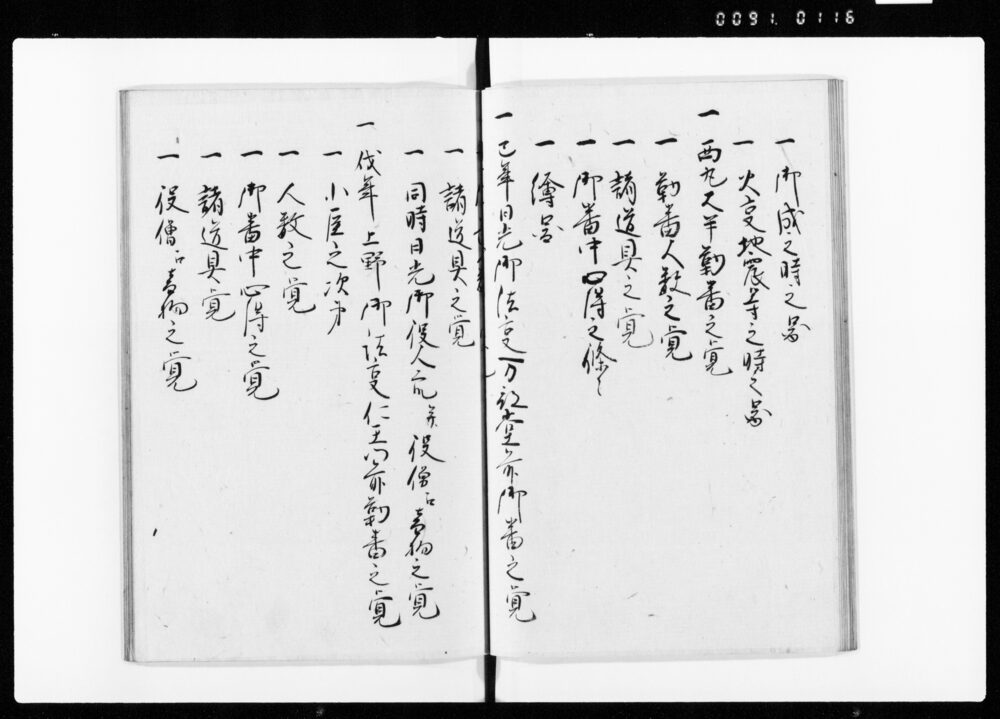 0091.0116
一 御成之時之図
一 火変地震等之時之図
一 西丸大手勤番之覚
一 勤番人数之覚
一 諸道具之覚
一 御番中心得之條々
一 絵図
一 巳年日光御法事万部堂前御番之覚
一 諸道具之覚
一 同時日光御役人衆并役僧江音物之覚
一 戌年上野御法事仁王門前勤番之覚
一 小屋之次第
一 人数之覚
一 御番中心得之覚
一 諸道具覚
一 役僧江音物之覚